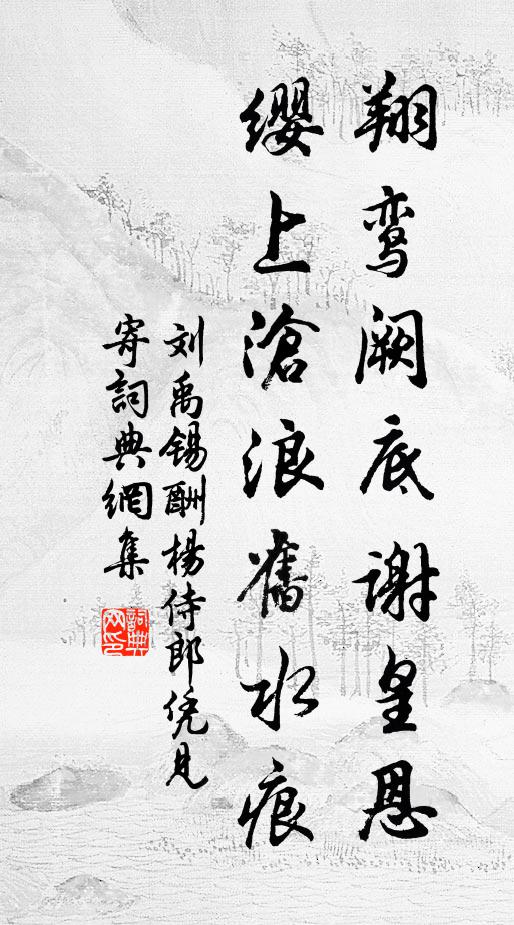 翔鸾阙底谢皇恩
缨上沧浪旧水痕
刘禹锡酬杨侍郎凭见
寄词典网集
词典
网印